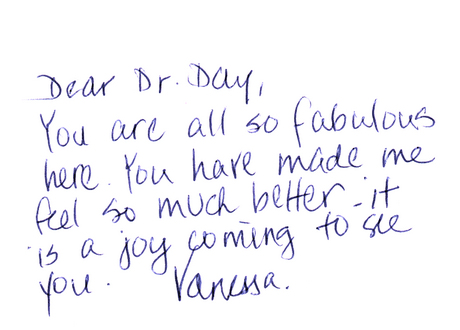 Dear Dr. Day,
You are all so fabulous
here. You have made me
feel so much better - it
is a joy coming to see
you. Vanessa.